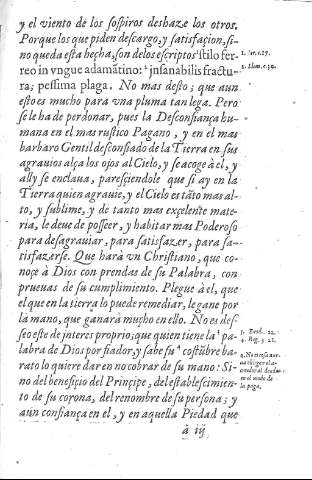 y el viento de los sospiros deshaze los otros.
Porque los que piden descargo, y satisfaçion, si-
no queda esta hecha, son delos escriptos ¹stilo fer-
reo in vngue adamãtino: ²insanabilis fractu-
ra; pessima plaga. No mas desto; que aun
esto es mucho para vna pluma tan lega. Pero
se le ha de perdonar, pues la Desconfiança hu-
mana en el mas rustico Pagano, y en el mas
barbaro Gentil desconfiado de la Tierra en sus
agrauios alça los ojos al Cielo, y se acoge à el, y
ally se enclaua, paresçiendole que si ay en la
Tierra quien agrauie, y el Cielo es tãto mas al-
to, y sublime, y de tanto mas exçelente mate-
ria, le deue de posseer, y habitar mas Poderoso
para desagrauiar, para satisfazer, para sa-
tisfazerse. Que harà vn Christiano, que co-
noçe à Dios con prendas de su Palabra, con
prueuas de su cumplimiento. Plegue à el, que
el que en la tierra lo puede remediar, le gane por
la mano, que ganarà mucho en ello. No es des-
seo este de interes proprio; que quien tiene la ³pa-
labra de Dios por fiador, y sabe su ⁴costũbre ba-
rato lo quiere dar en no cobrar de su mano: Si-
no del benefiçio del Prinçipe, del establescimien-
to de su corona, del renombre de su persona; y
aun confiança en el, y en aquella Piedad que
à iij